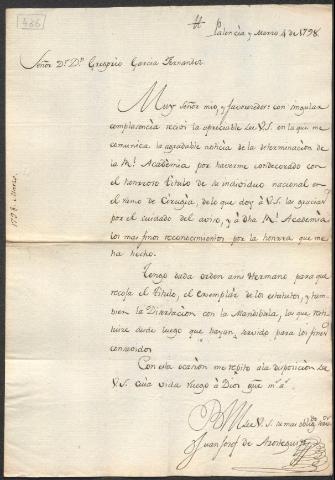 436
Palencia y Marzo 4 de 1798.
Señor Dr. Dn. Gregorio Garcia Fernandez
Muy Señor mio, y favorecedor: con singular
complacencia recivi la apreciable de V.S. en la que me
comunica la agradable noticia de la determinacion de
la Rl. Académia por haverme condecorado con
el honroso Titulo de su individuo nacional en
el ramo de Cirugia, de lo que doy à V.S. las gracias
por el cuidado del aviso, y à dha Rl. Académia
los mas finos reconocimientos por la honrra que me
ha hecho.
Tengo dada orden a mi Hermano para que
recoja el Titulo, el exemplar de los estatutos, y tam-
bien la Disertacion con la Mandibula, la que resti-
tuiré desde luego que hayan servido para los fines
consavidos
Con esta ocasion me repito a la disposicion de
V.S. cuia vida ruego à Dios gue ms. as.
BLM de V.S. su mas
Juan Josef de Arostegui
1798. Marzo.